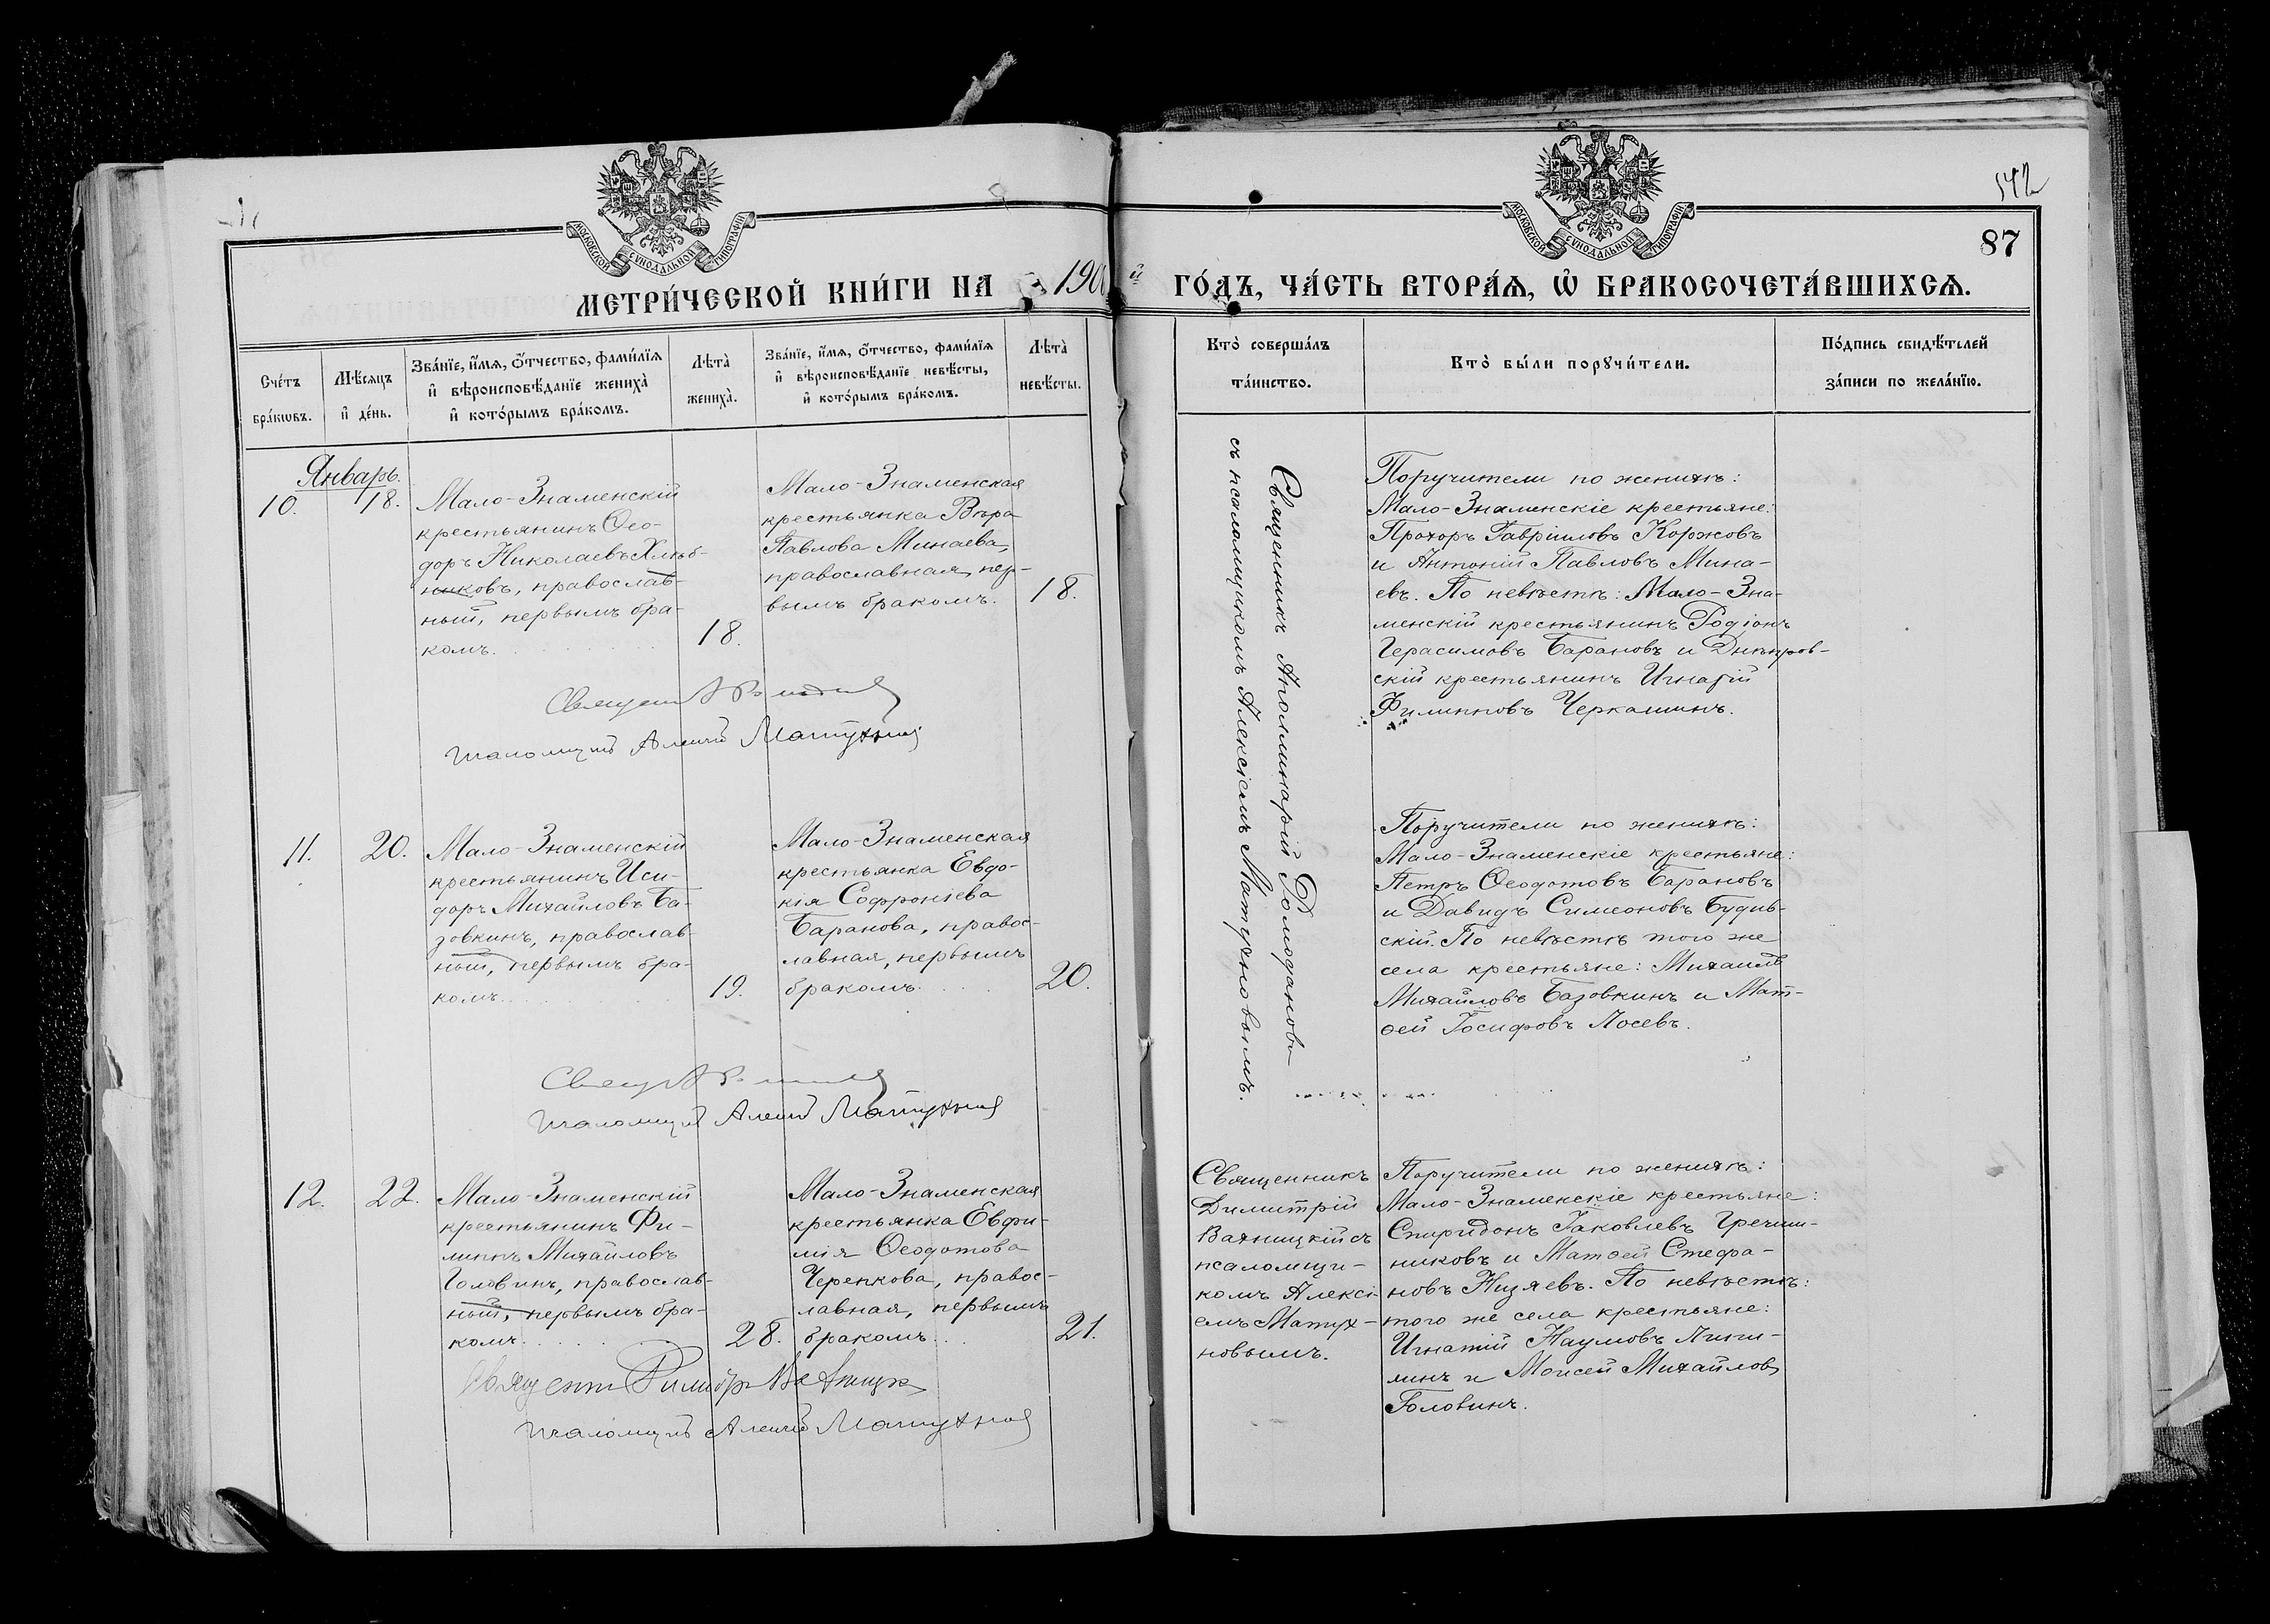 542
87
МОСКОВСКОЙ СѴНОДАЛЬНОЙ ТИПОГРАФІИ
МОСКОВСКОЙ СѴНОДАЛЬНОЙ ТИПОГРАФІИ
МЕТРИ́ЧЕСКОЙ КНИ́ГИ НА 190 й ГО́ДЪ, ЧА́СТЬ ВТОРА́Я, Ѡ҆ БРАКОСОЧЕТА́ВШИХСЯ.
Сче́тъ бра́ковъ.
Мѣ́сяцъ и҆ де́нь.
Зва́нїе, и҆́мя, ѻ҆́тчество, фами́лїя и҆ вѣроисповѣ́данїе жениха̀ и҆ кото́рымъ бра́комъ.
Лѣ́та̀ жениха̀.
Зва́нїе, и҆́мя, ѻ҆́тчество, фами́лїя и҆ вѣроисповѣ́данїе невѣ́сты, и҆ кото́рымъ бра́комъ.
Лѣ́та̀ невѣ́сты.
Кто̀ соверша́лъ та́инство.
Кто̀ бы́ли порꙋчи́тели.
По́дпись свидѣ́телей за́писи по жела́нїю.
Январь.
10. 18.
Мало-Знаменскій
крестьянинъ Ѳео-
доръ Николаевъ Хлѣб-
никовъ, православ-
ный, первымъ бра-
комъ.
18.
Мало-Знаменская
крестьянка Вѣра
Павлова Минаева,
православная, пер-
вымъ бракомъ.
18.
Священникъ Аполлинарій Ромодановъ
съ псаломщикомъ Алексіемъ Матухновымъ.
Поручители по женихѣ:
Мало-Знаменскіе крестьяне:
Прохоръ Гавріиловъ Коржовъ
и Антоній Павловъ Мина-
евъ. По невѣстѣ: Мало-Зна-
менскій крестьянинъ Родіонъ
Герасимовъ Барановъ и Днѣпров-
скій крестьянинъ Игнатій
Филипповъ Черкашинъ.
псаломщикъ Алексій Матухновъ
11. 20.
Мало-Знаменскій
крестьянинъ Иси-
доръ Михайловъ Ба-
зовкинъ, православ-
ный, первымъ бра-
комъ.
19.
Мало-Знаменская
крестьянка Евдо-
кія Софроніева
Баранова, правос-
лавная, первымъ
бракомъ.
20.
Поручители по женихѣ:
Мало-Знаменскіе крестьяне:
Петръ Ѳеодотовъ Барановъ
и Давидъ Симеоновъ Будив-
скій. По невѣстѣ того же
села крестьяне: Михаилъ
Михайловъ Базовкинъ и Мат-
ѳей Іосифовъ Лосевъ.
псаломщикъ Алексій Матухновъ
12. 22.
Мало-Знаменскій
крестьянинъ Фи-
липпъ Михайловъ
Головинъ, православ-
ный, первымъ бра-
комъ.
28.
Мало-Знаменская
крестьянка Евфи-
мія Ѳеодотова
Черепкова, правос-
лавная, первымъ
бракомъ.
21.
Священникъ
Димитрій
Вахницкій съ
псаломщи-
комъ Алексі-
емъ Матух-
новымъ.
Поручители по женихѣ:
Мало-Знаменскіе крестьяне:
Спиридонъ Іаковлевъ Гречиш-
никовъ и Матѳей Стефа-
новъ Низяевъ. По невѣстѣ:
того же села крестьяне:
Игнатій Наумовъ Липи-
линъ и Моисей Михайловъ
Головинъ.
псаломщикъ Алексій Матухновъ